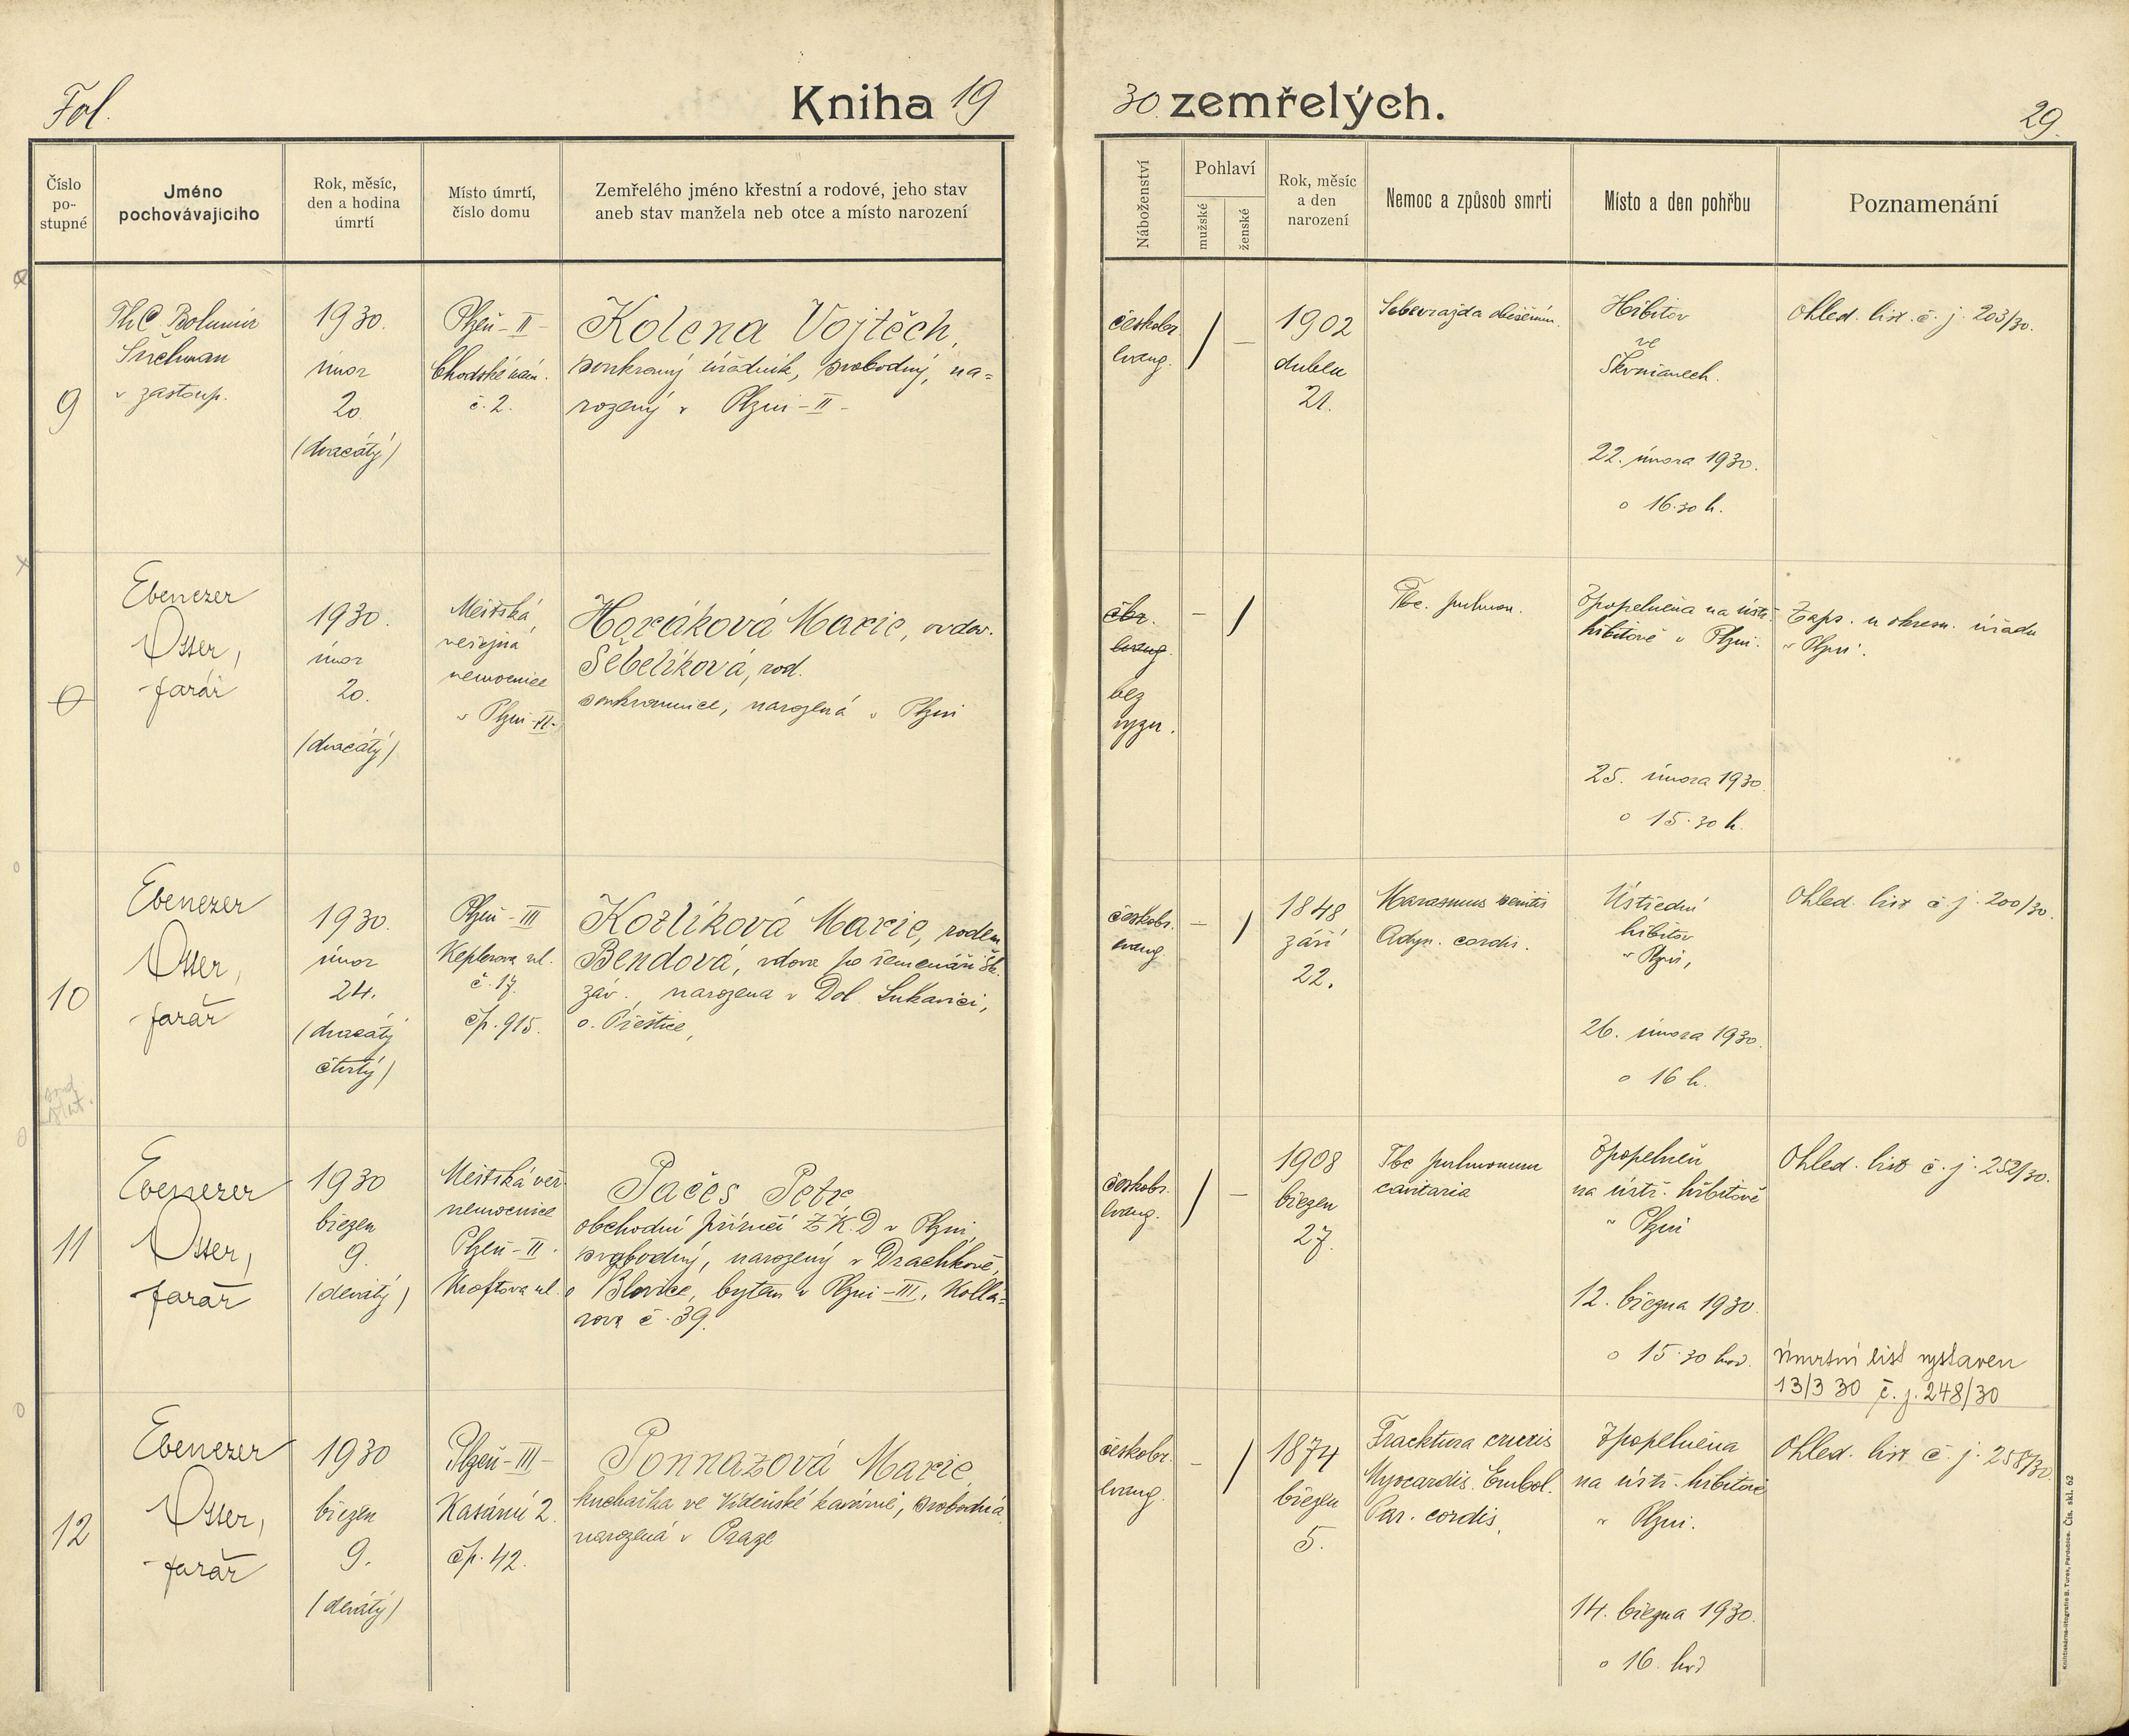 Fol.
Kniha 19 30 zemřelých.
29.
Číslo po- stupné
Jméno pochovávajícího
Rok, měsíc, den a hodina úmrtí
Místo úmrtí, číslo domu
Zemřelého jméno křestní a rodové, jeho stav
aneb stav manžela neb otce a místo narození
Náboženství
Pohlaví
mužské
ženské
Rok, měsíc a den narození
Nemoc a způsob smrti
Místo a den pohřbu
Poznamenání
9
ThC Bohumír
v zastoup.
1930.
únor
20.
(dvacátý)
Plzeň - II -
Chodské nám.
č. 2.
Kolena Vojtěch,
soukromý úředník, svobodný, na=
rozený v Plzni - II -
českobr.
evang.
/
—
1902
duben
21.
Sebevražda
Hřbitov
ve
Skvrňanech.
22. února 1930.
o 16.30 h.
Ohled. list. č. j. 203/30.
Ebenezer
Otter,
farář
1930.
únor
20.
(dvacátý)
Městská
veřejná
nemocnice
v Plzni - II -
Horáková Marie, ovdov.
Šebelíková, rod.
soukromnice, narozená v Plzni
čbr.
evang.
bez
vyzn.
—
/
Tbc. pulmon.
Zpopelněna na ústř.
hřbitově v Plzni.
25. února 1930.
o 15.30 h.
Zaps. u okresn. úřadu
v Plzni.
10
Ebenezer
Otter,
farář
1930.
únor
24.
(dvacátý
čtvrtý)
Plzeň - III
Keplerova ul.
č. 17.
čp. 915.
Kozlíková Marie, rozen
Bendová, vdova po řemenáři Šk.
záv., narozena v Dol. Lukavici,
o. Přeštice,
českobr.
evang.
—
/
1848
září
22.
Marasmus senilis
Adyn. cordis.
Ústřední
hřbitov
v Plzni,
26. února 1930.
o 16 h.
Ohled. list č. j. 200/30.
11
Ebenezer
Otter,
farář
1930
březen
9.
(devátý)
Městská veř.
nemocnice
Plzeň - II.
Kroftova ul.
Pačes Petr,
obchodní příručí Z.K.D v Plzni,
svobodný, narozený v Drachkově,
o Blovice, bytem v Plzni - III, Kollá=
rova č. 39.
českobr.
evang.
/
—
1908
březen
27.
Tbc pulmonum
cavitaria
Zpopelněn
na ústř. hřbitově
v Plzni
12. března 1930.
o 15.30 hod.
Ohled. list č. j. 252/30.
Úmrtní list vystaven
13/3 30 č. j. 248/30
12
Ebenezer
Otter,
farář
1930
březen
9.
(devátý)
Plzeň - III -
Kasární 2.
čp. 42.
Ponnazová Marie,
kuchařka ve Vídeňské kavárně, svobodná,
narozená v Praze
českobr.
evang.
—
/
1874
březen
5.
Fracktura cruris
Myocardis. Embol.
Par. cordis,
Zpopelněna
na ústř. hřbitově
v Plzni.
14. března 1930.
o 16. hod
Ohled. list č. j. 258/30.
Knihtiskárna-litografie B. Tures, Pardubice. Čís. skl. 62